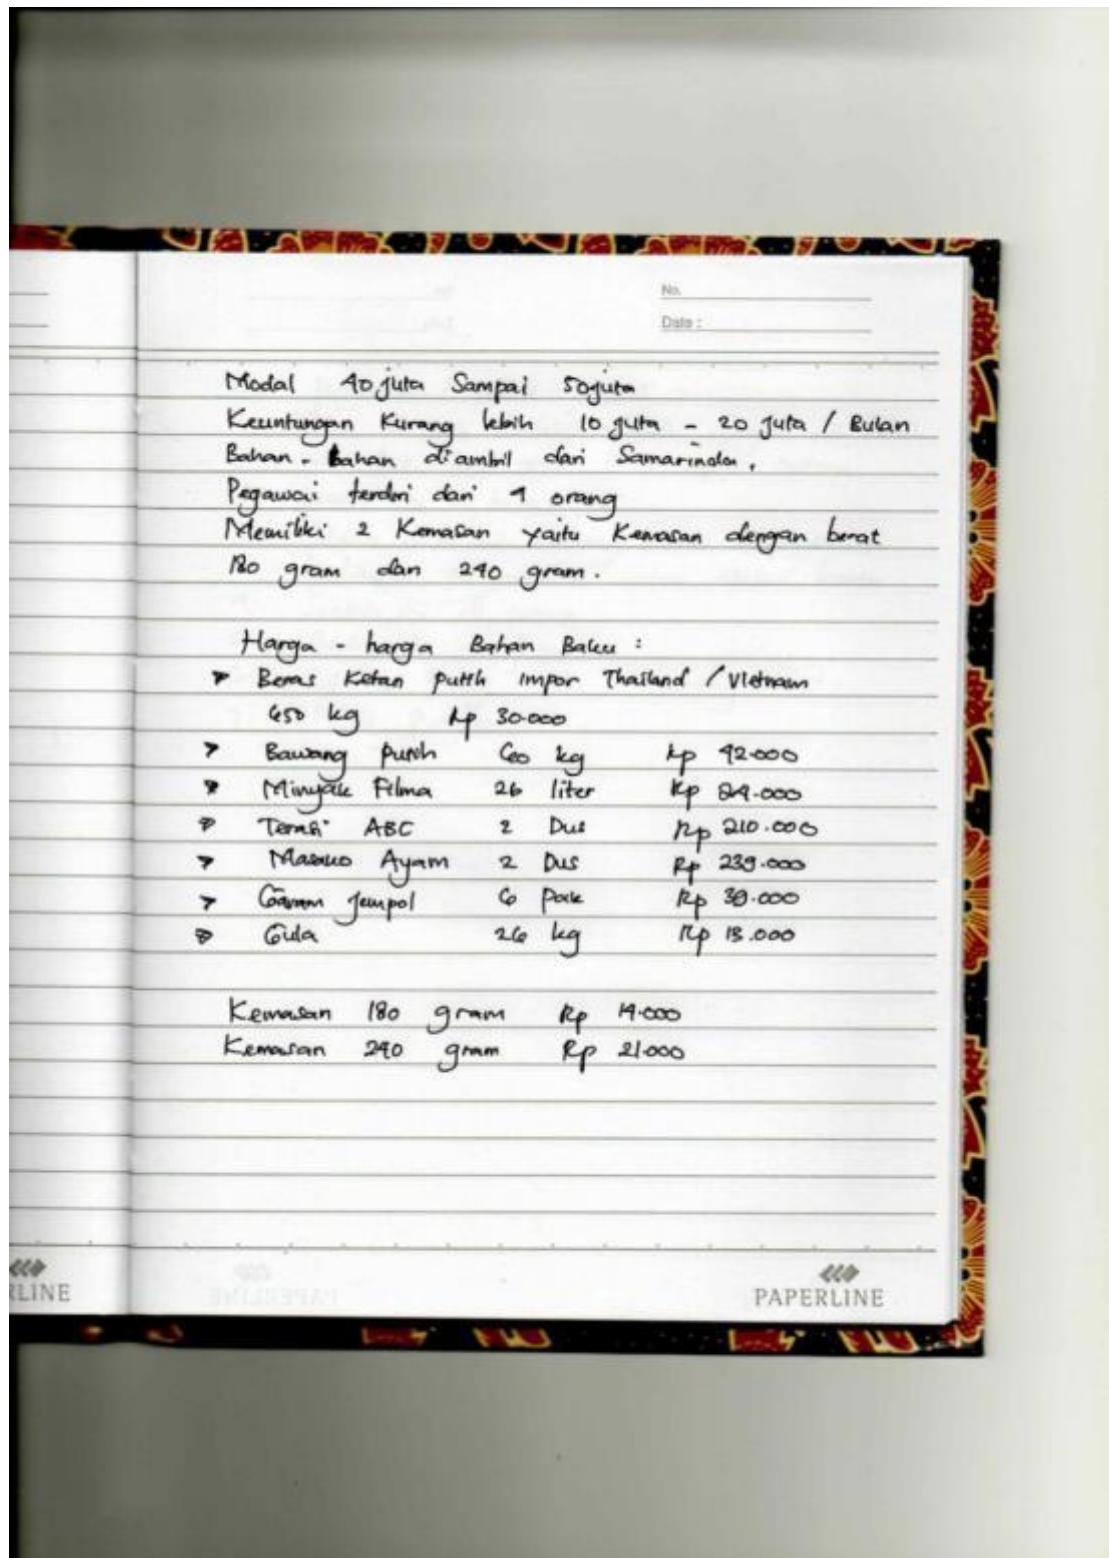 No.
Date :
Modal 40 juta Sampai 50 juta
Keuntungan Kurang lebih 10 juta - 20 juta / Bulan
Bahan - bahan diambil dari Samarinda.
Pegawai terdiri dari orang
Memiliki 2 Kemasan yaitu Kemasan dengan berat
180 gram dan 240 gram.
Harga - harga Bahan Baku :
Beras Ketan putih impor Thailand / Vietnam
kg Rp 30.000
Bawang putih 60 kg Rp 42.000
Minyak Filma 26 liter Rp
Terasi ABC 2 Dus Rp 210.000
Masako Ayam 2 Dus Rp 239.000
Garam Jempol 6 Pack Rp
Gula 26 kg Rp
Kemasan 180 gram Rp 14.000
Kemasan 240 gram Rp 21.000
RLINE
PAPERLINE